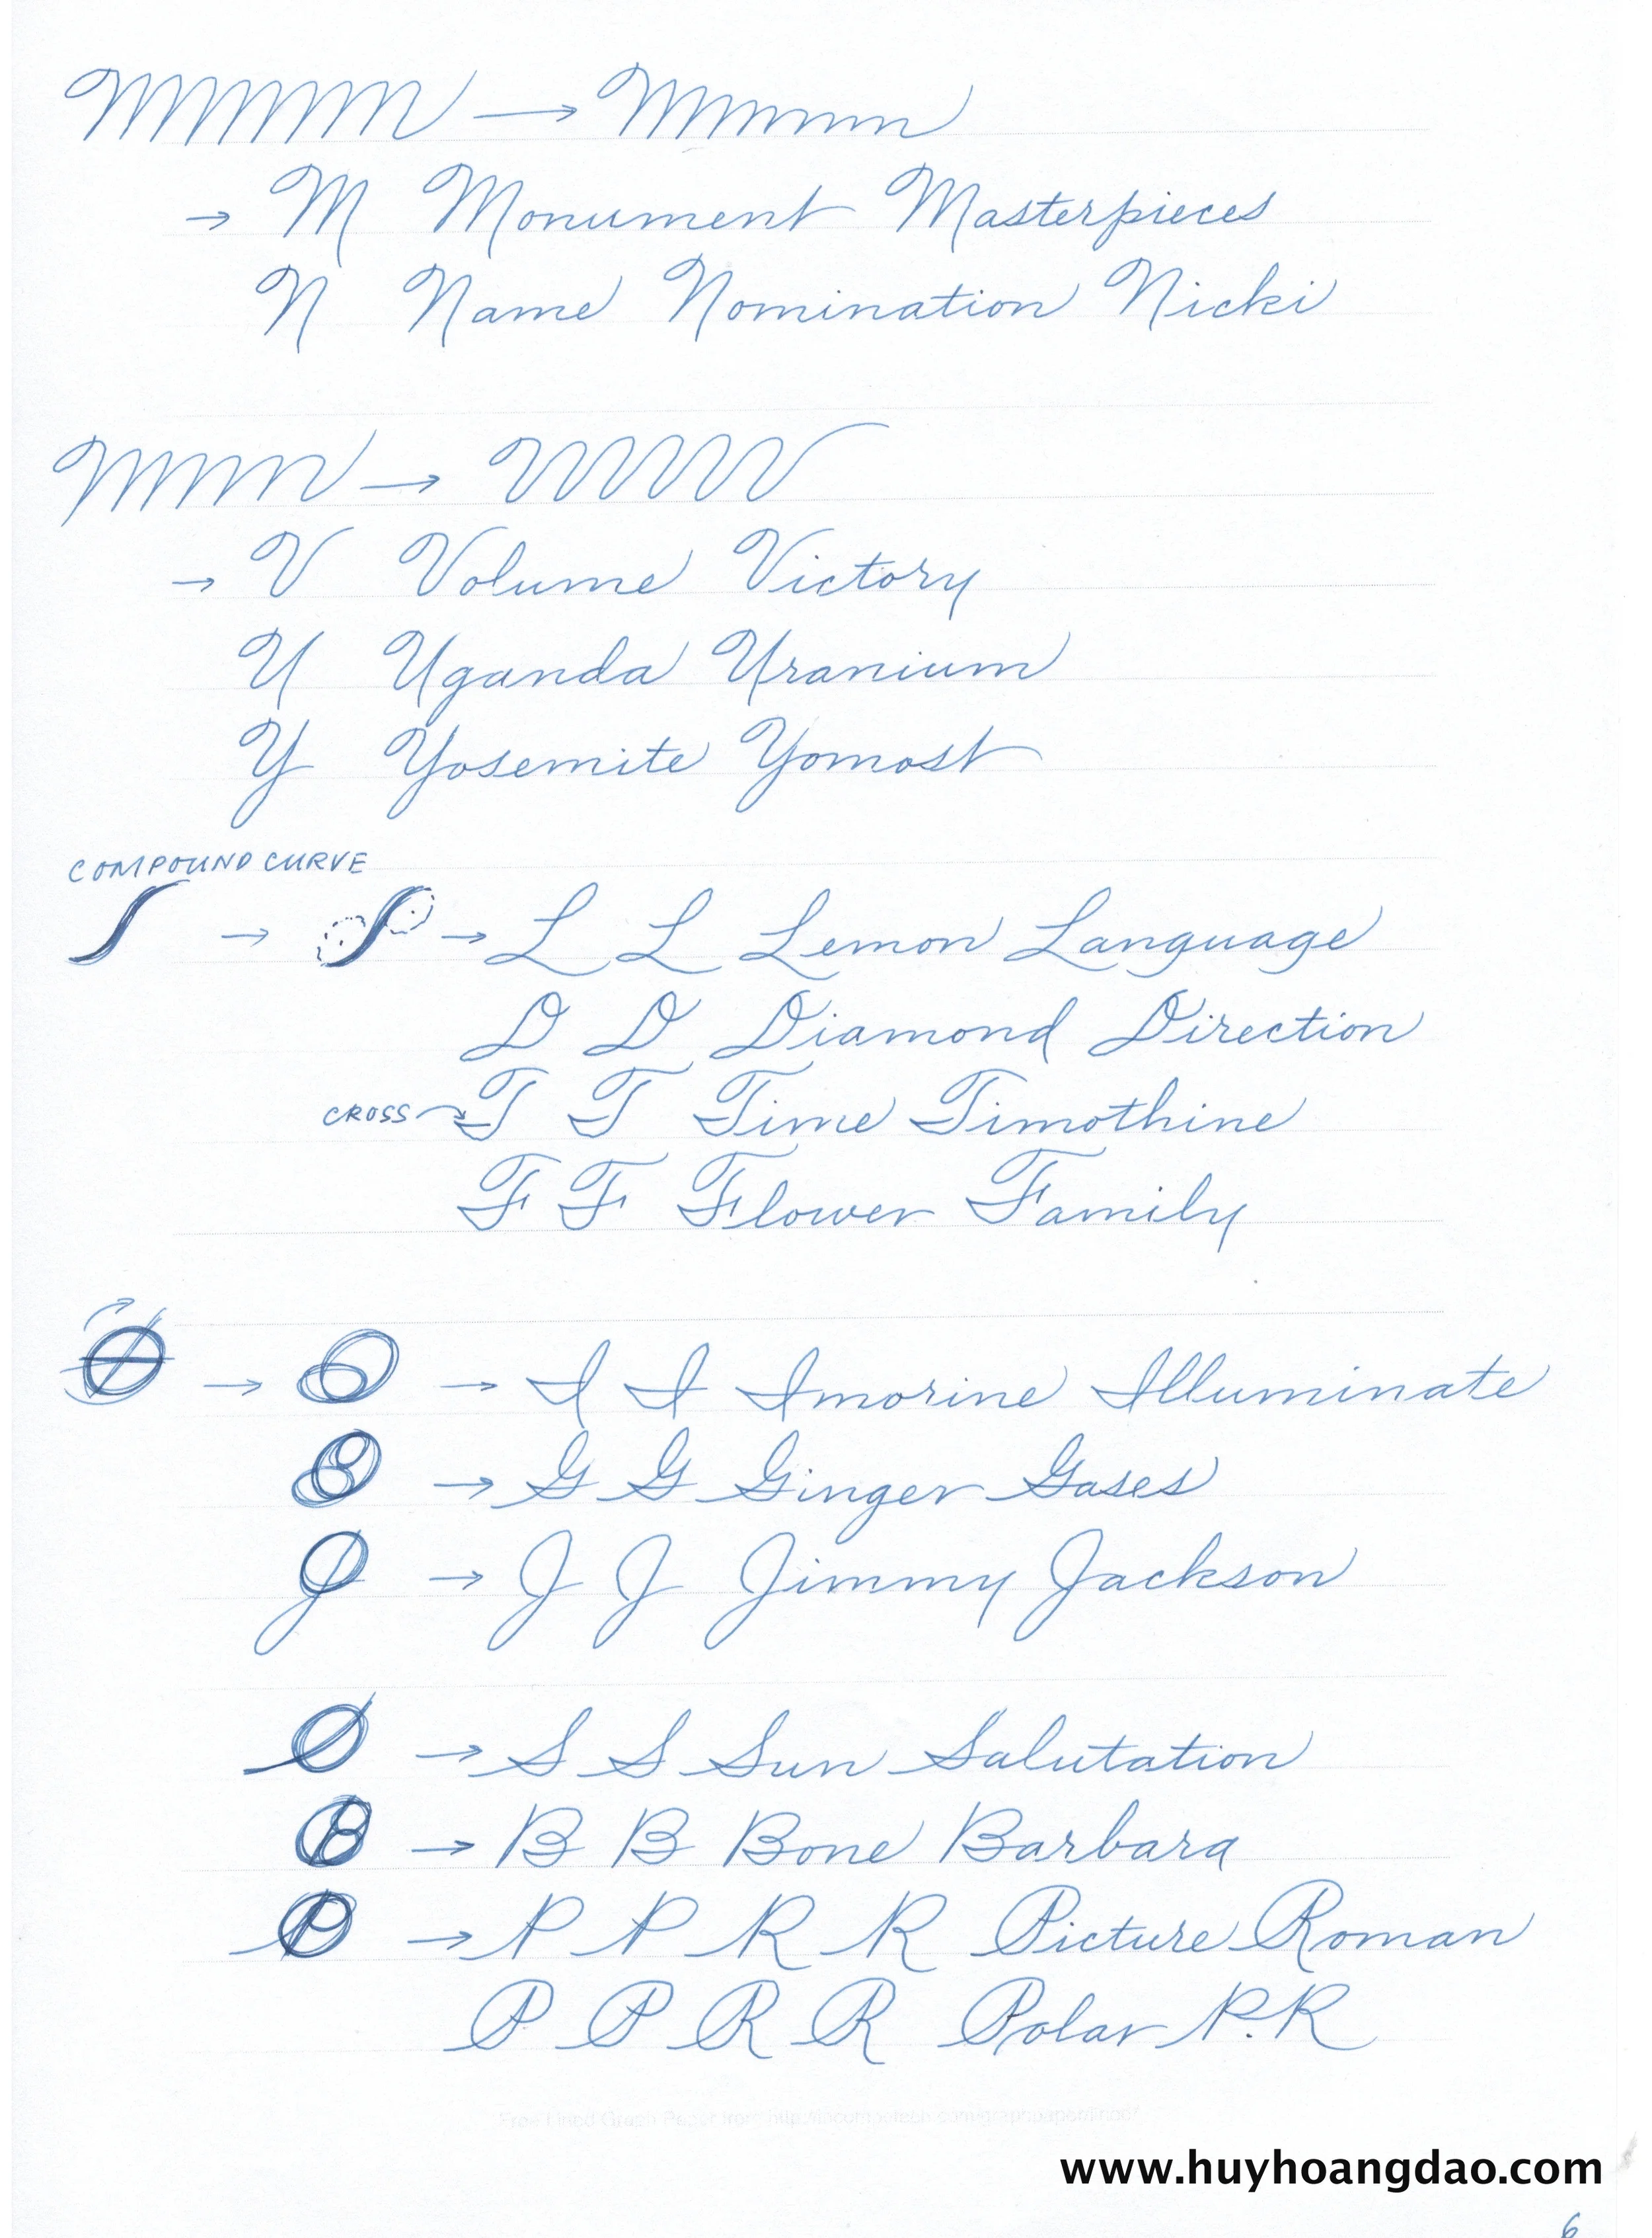 M Monument Masterpieces
N Name Nomination Nicki
V Volume Victory
U Uganda Uranium
Y Yosemite Yomost
COMPOUND CURVE
L L Lemon Language
D D Diamond Direction
CROSS T T Time Timothine
F F Flower Family
I I Imorine Illuminate
G G Ginger Gases
J J Jimmy Jackson
S S Sun Salutation
B B Bone Barbara
P P R R Picture Roman
P P R R Polar P.R
www.huyhoangdao.com
6